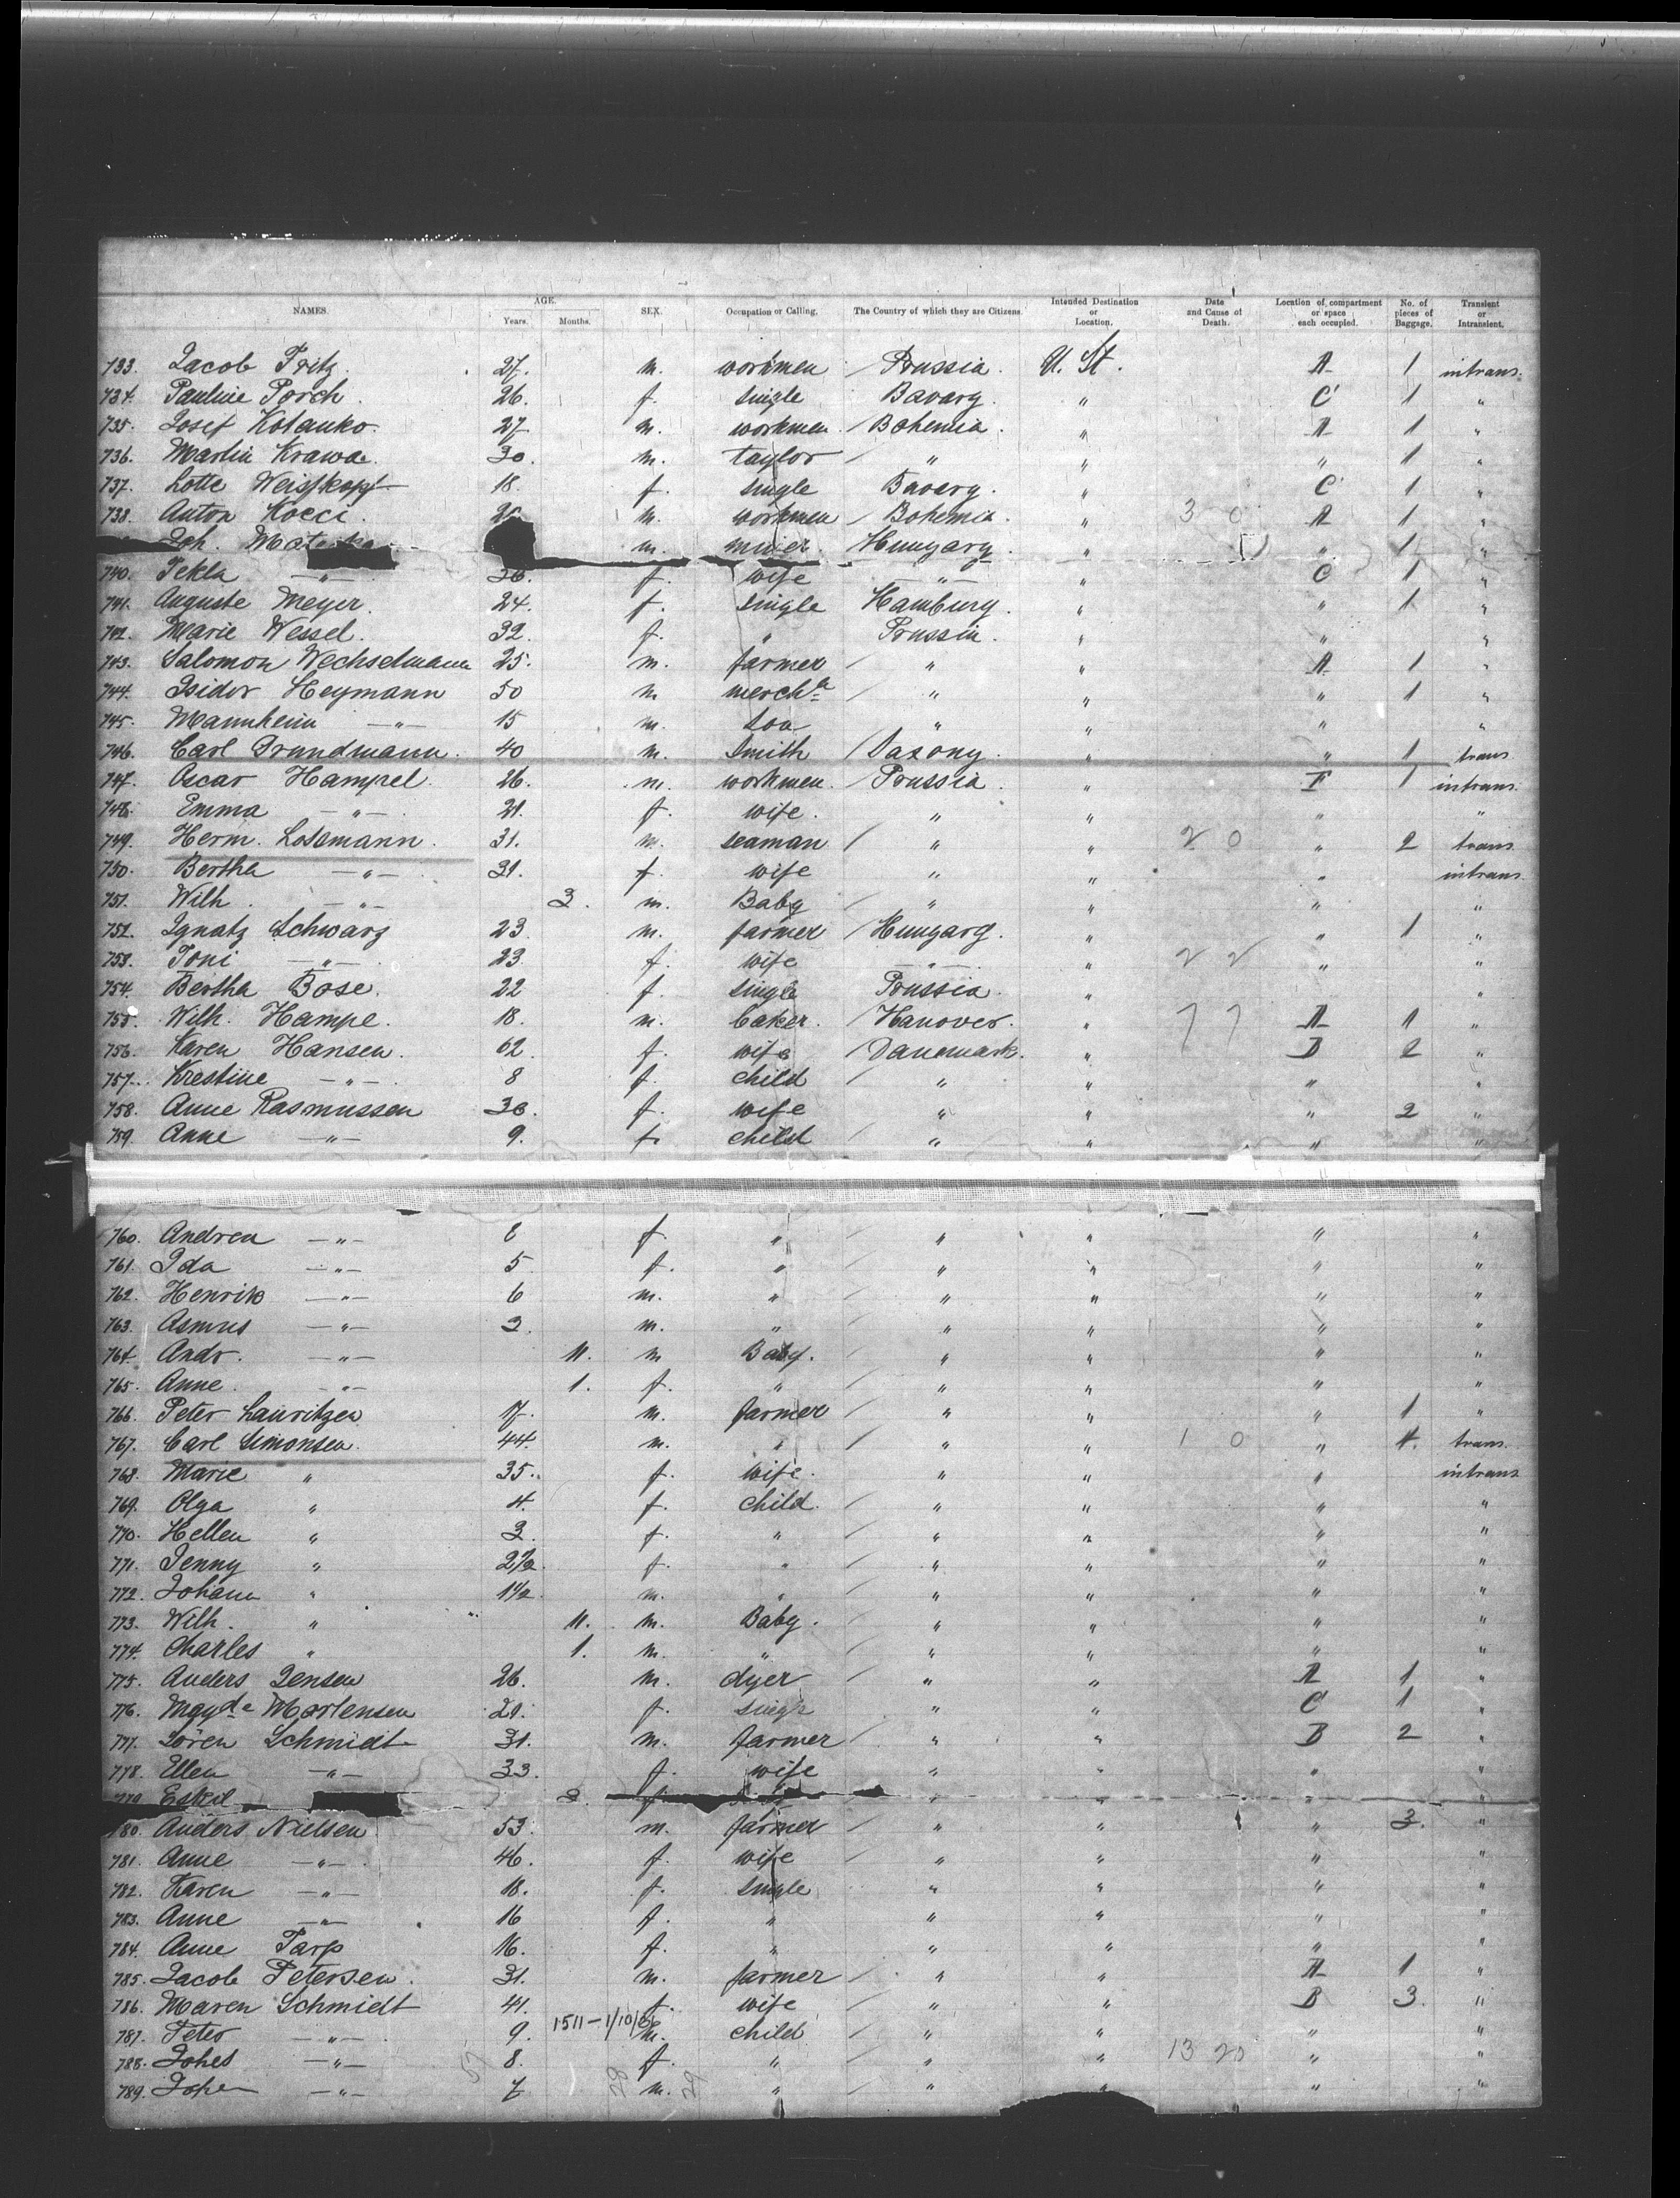 NAMES. AGE. Years. Months. SEX. Occupation or Calling. The Country of which they are Citizens. Intended Destination or Location. Date and Cause of Death. Location of compartment or space each occupied. No. of pieces of Baggage. Transient or Intransient.
733. Jacob Fritz. 27. m. workmen / Prussia. U. St. A 1 intrans.
734. Pauline Porch. 26. f. single Bavary. " C 1 "
735. Josef Kotanko. 27 m. workmen. / Bohemia. " A 1 "
736. Martin Krawa. 30. m. taylor / " " " 1 "
737. Lotte Weisskopf 18. f. single Bavery. " C 1 "
738. Anton Kocci. m. workmen / Bohemia. " 3 0 A 1 "
Joh. m. miner. / Hungary. " " 1 "
740. Tekla —"— 26. f. wife —"— " C 1 "
741. Auguste Meyer. 24. f. single Hamburg. " " 1 "
742. Marie Wessel. 32. f. " Prussia. " " "
743. Salomon Wechselmann 25. m. farmer / " " A 1 "
744. Isidor Heymann 50 m merch / " " " 1 "
745. Mannheim —"— 15 m. son " " " "
746. Carl Grundmann. 40 m. smith / Saxony. " " 1 trans.
747. Oscar Hampel. 26. m. workmen. / Prussia. " F 1 intrans.
748. Emma —"— 21. f. wife. " " " "
749. Herm. Lossmann. 31. m. seaman / " " 2 0 " 2 trans.
750. Bertha —"— 31. f. wife " " " intrans.
751. Wilh. —"— 3. m. Baby / " " " "
752. Ignatz Schwarz 23 m. farmer / Hungary. " " 1 "
753. Toni —"— 23 f. wife —"— " 2 2 " "
754. Bertha Bose. 22 f. single Prussia. " "
755. Wilh. Hampe. 18. m. baker. / Hanover. " 7 7 A 1 "
756. Karen Hansen. 62. f. wife / Danemark. " B 2 "
757. Krestine —"— 8 f. child / " " " "
758. Anne Rasmussen 36. f. wife " " " 2 "
759. Anne —"— 9. f. child / " " " "
760. Andrea —"— 8 f. " / " " " "
761. Ida —"— 5 f. " / " " " "
762. Henrik —"— 6 m. " / " " " "
763. Asmus —"— 2. m. " / " " " "
764. Andr. —"— 11. m Baby. / " " " "
765. Anne. —"— 1. f. " / " " " "
766. Peter Lauritzen 17. m. farmer / " " " 1 "
767. Carl Simonsen. 44. m. " / " " 1 0 " 4. trans.
768. Marie " 35. f. wife. " " " intrans
769. Olga " 4. f. child. / " " " "
770. Hellen " 3. f. " / " " " "
771. Jenny " 2½. f. " / " " " "
772. Johann " 1½. m. " / " " " "
773. Wilh. " 11. m. Baby. / " " " "
774. Charles " 1. m. " / " " " "
775. Anders Jensen 26. m. dyer / " " A 1 "
776. Magde Mortensen 21. f. single " " C 1 "
777. Sören Schmidt 31. m. farmer / " " B 2 "
778. Ellen —"— 33. f. wife " " " "
779. Eskil " " "
780. Anders Nielsen 53. m. farmer / " " " 3. "
781. Anne —"— 46. f. wife / " " " "
782. Karen —"— 18. f. single " " " "
783. Anne —"— 16 f. " " " " "
784. Anne Tarp 16. f. " " " " "
785. Jacob Petersen. 31. m. farmer / " " A 1 "
786. Maren Schmidt 41. f. wife " " B 3. "
1511—1/10/61
787. Peter —"— 9. m. child / " " " "
788. —"— 8. f. " / " " 13 20 " "
789. —"— 7 m. " / " " " "